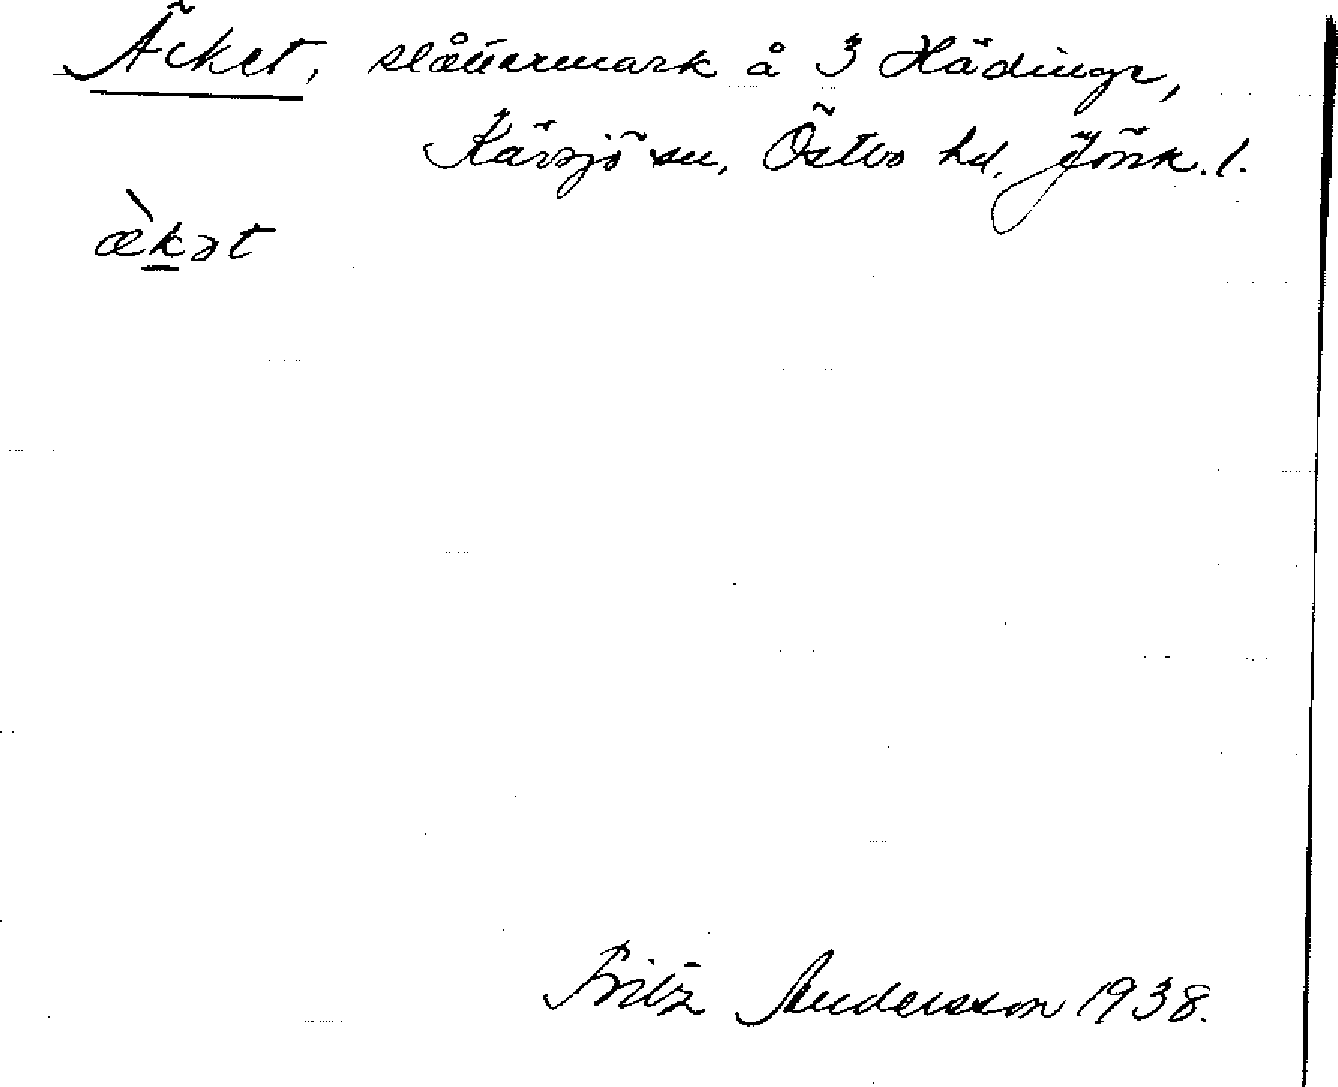 Äcket, slåttermark å 3 Hädinge,
Kävsjö sn, Östbo hd, Jönk. l.
æ̀k̲ət
Fritz Andersson 1938.